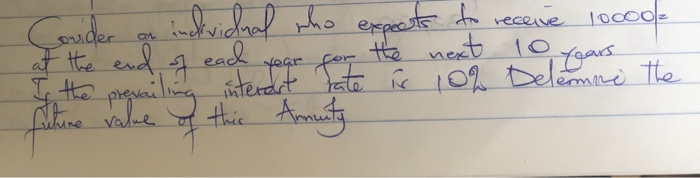 Consider an individual who expects to receive 10000/=
at the end of each year for the next 10 years
If the prevailing interest rate is 10% Determine the
future value of this Annuity